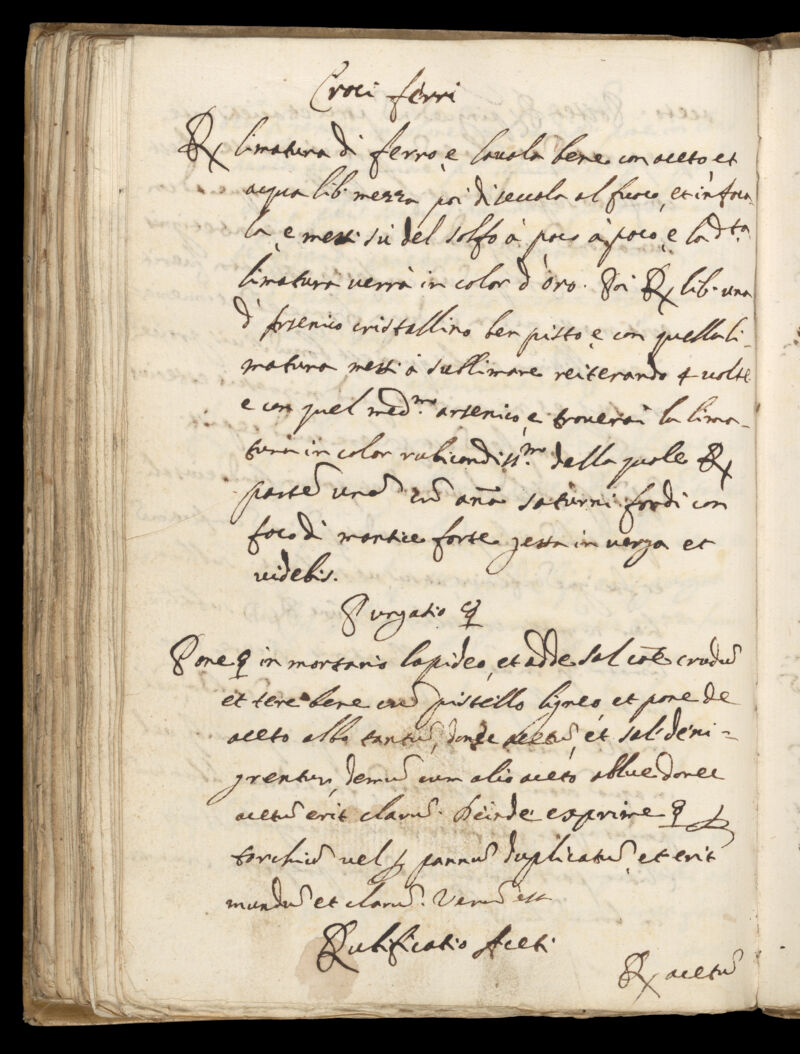 Croci ferri
℞ limatura di ferro, e lavala bene con aceto, et
acqua lib. mezza poi diseccala al fuoco, et infoca-
la, e metti sù del solfo à poco à poco, e la dta
limatura verrà in color d'oro. Poi ℞ lib. una
d'Arsenico cristallino ben pisto, e con quella li-
matura metti à sullimare reiterando 4 volte
e con quel med.mo arsenico, e troverai la lima-
tura in color rubicondiss.mo della quale ℞
parte᷑ una᷑ cu᷑ anā saturni fondi con
foco di mantice forte getta in verga et
videbis.
Purgatio ☿
Pone ☿ in mortario lapideo, et adde sal coē crudu᷑
et tere bene cu᷑ pistello ligneo, et pone de
aceto albo tantu᷑, donec acetu᷑, et sal deni-
grentur, demu᷑ cum alio aceto ablue donec
acetu᷑ erit claru᷑. Deinde exprime ☿ ꝑ
torchiu᷑ vel ꝑ pannu᷑ duplicatu᷑, et erit
mundu᷑ et claru᷑. Veru᷑ est
Rubificatio Aceti
℞ acetu᷑